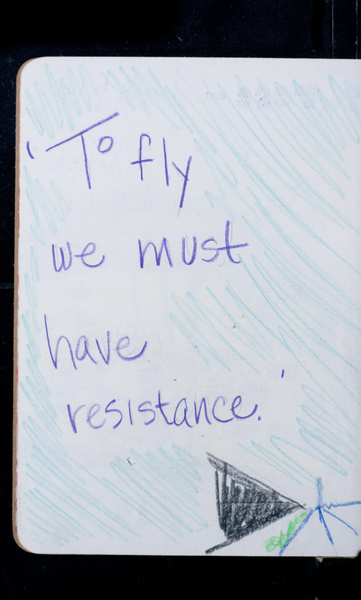 'To fly
we must
have
resistance.'